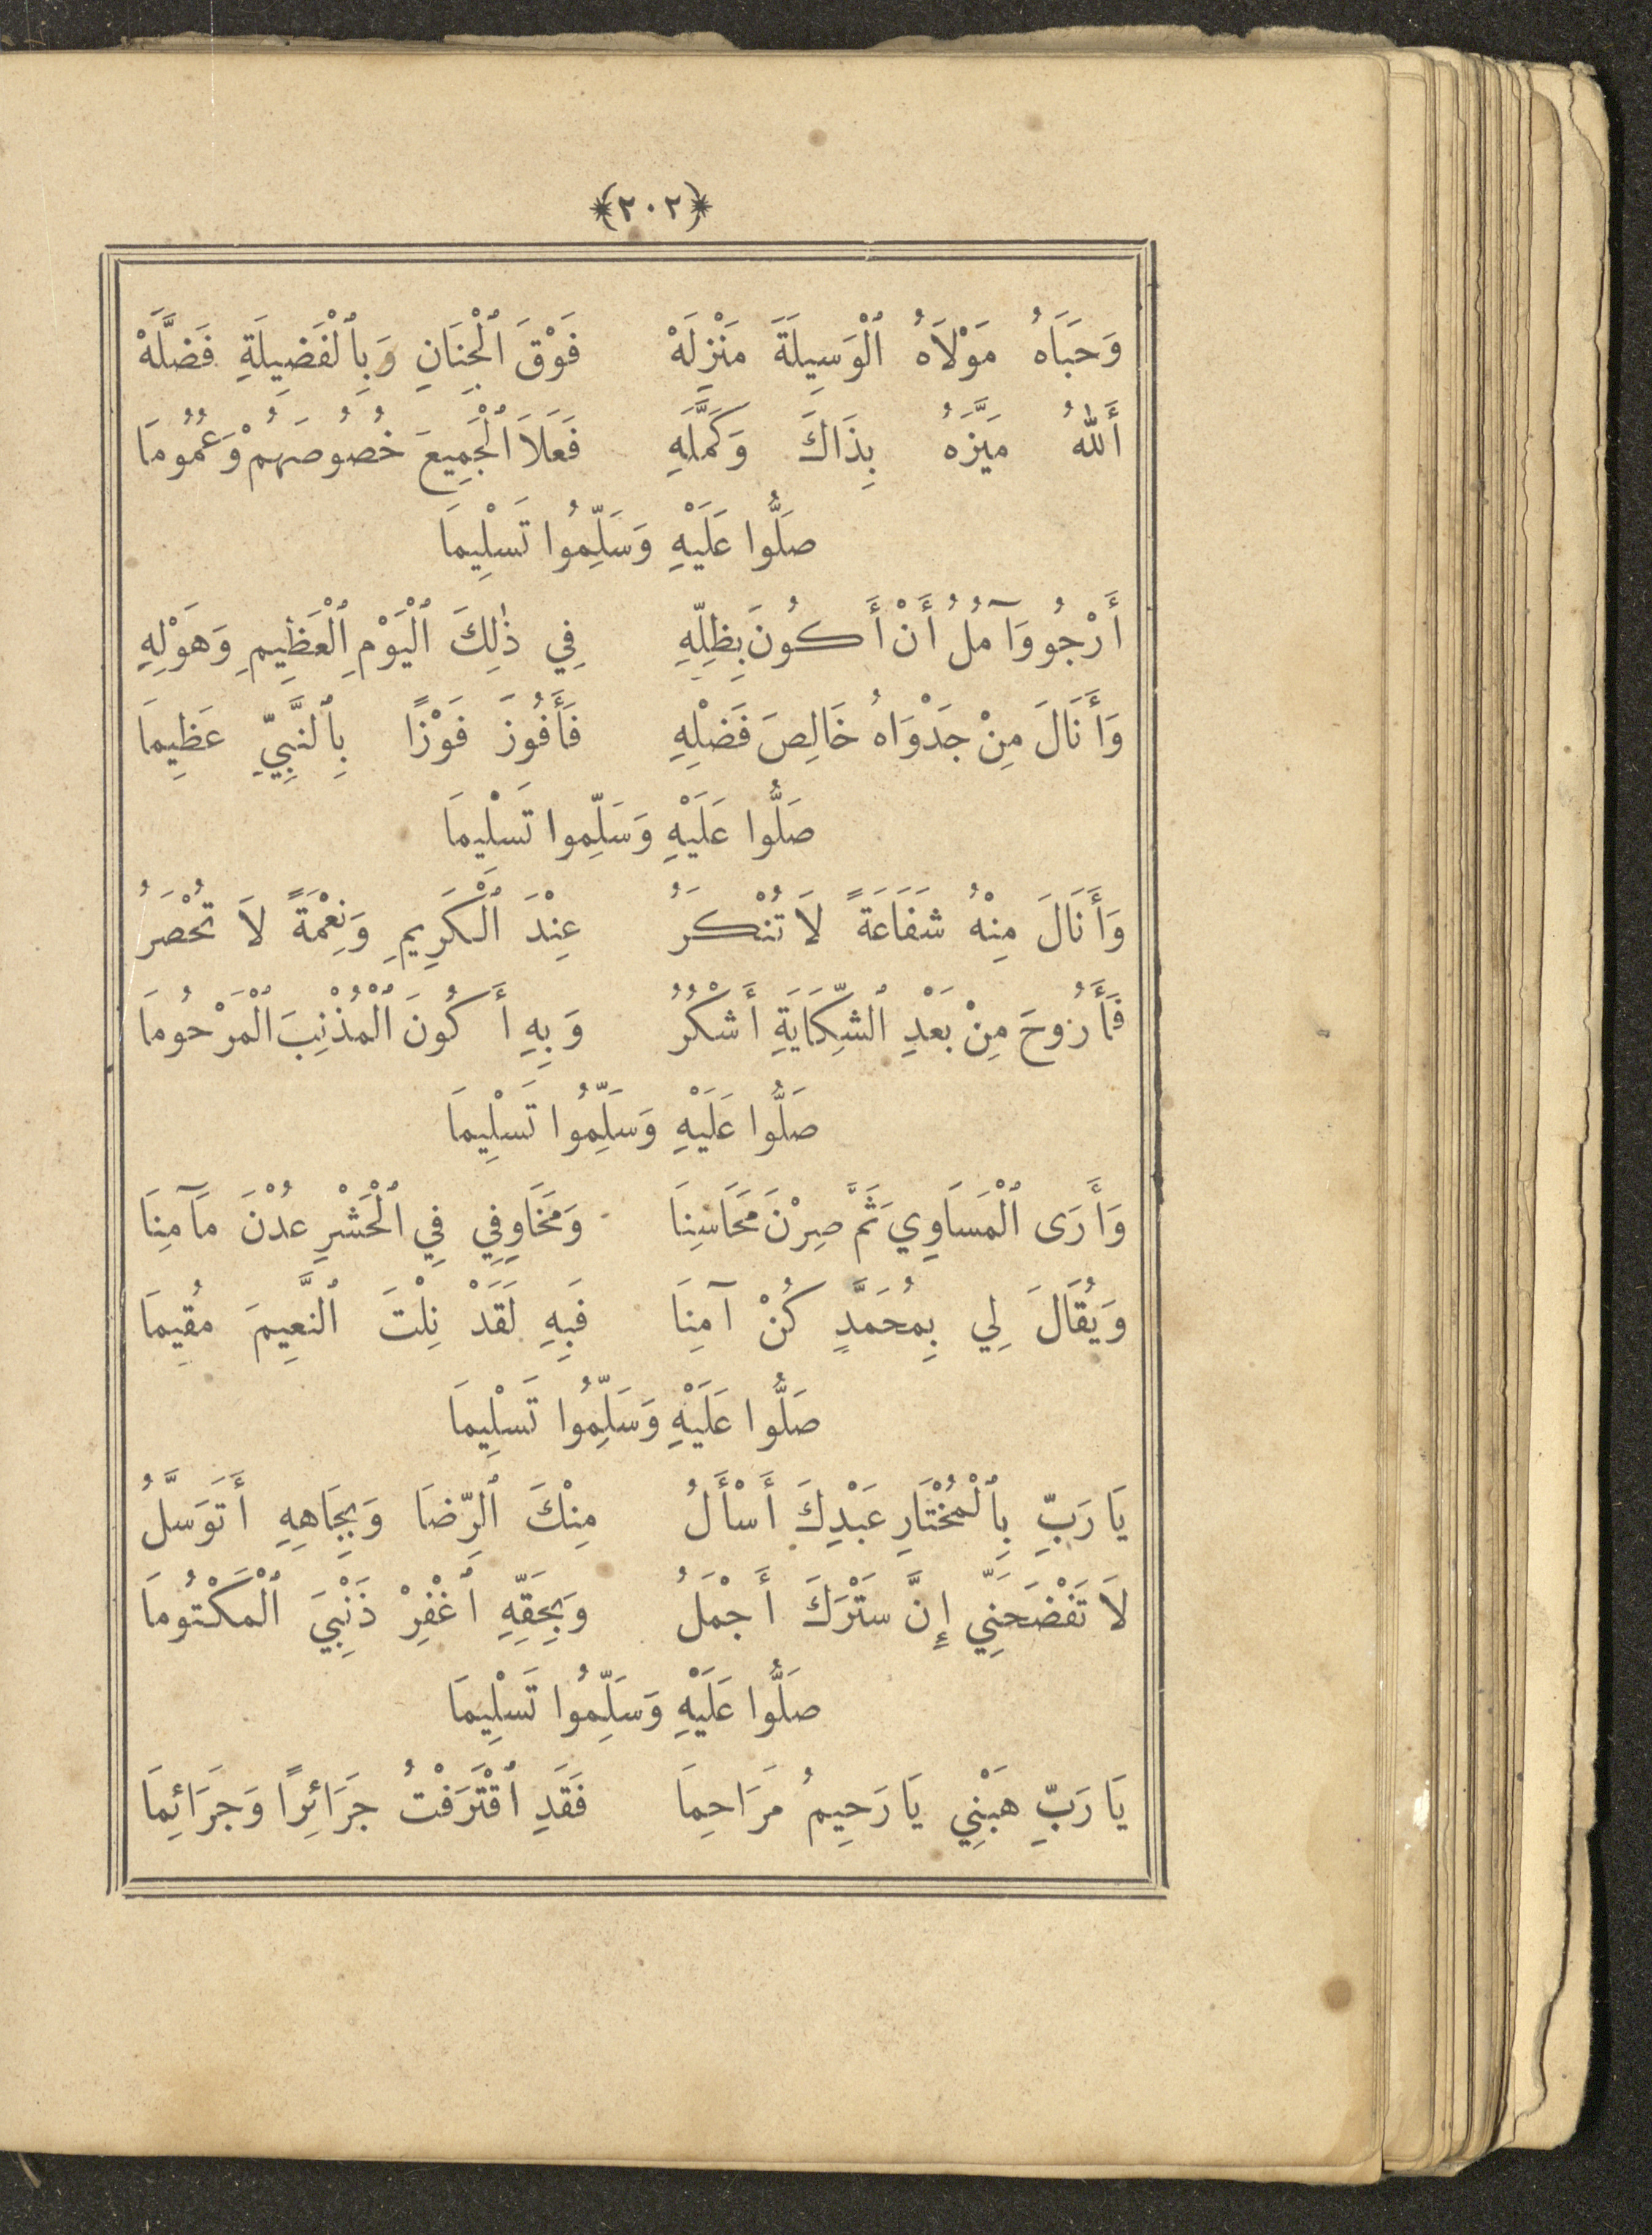 ﴿٢٠٢﴾
وَحَبَاهُ مَوْلَاهُ ٱلْوَسِيلَةَ مَنْزِلَهْ فَوْقَ ٱلْجِنَانِ وَبِٱلْفَضِيلَةِ فَضَّلَهْ
أَللهُ مَيَّزَهُ بِذَاكَ وَكَمَّلَهِ فَعَلَا ٱلْجَمِيعَ خُصُوصَهُمْ وَعُمُومَا
صَلُّوا عَلَيْهِ وَسَلِّمُوا تَسْلِيمَا
أَرْجُو وَآمُلُ أَنْ أَكُونَ بِظِلِّهِ فِي ذٰلِكَ ٱلْيَوْمِ ٱلْعَظِيمِ وَهَوْلِهِ
وَأَنَالَ مِنْ جَدْوَاهُ خَالِصَ فَضْلِهِ فَأَفُوزَ فَوْزًا بِٱلنَّبِيِّ عَظِيمَا
صَلُّوا عَلَيْهِ وَسَلِّموا تَسْلِيمَا
وَأَنَالَ مِنْهُ شَفَاعَةً لَا تُنْكَرُ عِنْدَ ٱلْكَرِيمِ وَنِعْمَةً لَا تُحْصَرُ
فَأَرُوحَ مِنْ بَعْدِ ٱلشِّكَايَةِ أَشْكُرُ وَبِهِ أَكُونَ ٱلْمُذْنِبَ ٱلْمَرْحُومَا
صَلُّوا عَلَيْهِ وَسَلِّمُوا تَسْلِيمَا
وَأَرَى ٱلْمَسَاوِي ثَمَّ صِرْنَ مَحَاسِنَا وَمَخَاوِفِي فِي ٱلْحَشْرِ عُدْنَ مَآمِنَا
وَيُقَالَ لِي بِمُحَمَّدٍ كُنْ آمِنَا فَبِهِ لَقَدْ نِلْتَ ٱلنَّعِيمَ مُقِيمَا
صَلُّوا عَلَيْهِ وَسَلِّمُوا تَسْلِيمَا
يَا رَبِّ بِٱلْمُخْتَارِ عَبْدِكَ أَسْأَلُ مِنْكَ ٱلرِّضَا وَبِجَاهِهِ أَتَوَسَّلُ
لَا تَفْضَحَنِّي إِنَّ سَتْرَكَ أَجْمَلُ وَبِحَقِّهِ ٱغْفِرْ ذَنْبِيَ ٱلْمَكْتُومَا
صَلُّوا عَلَيْهِ وَسَلِّمُوا تَسْلِيمَا
يَا رَبِّ هَبْنِي يَا رَحِيمُ مَرَاحِمَا فَقَدِ ٱقْتَرَفْتُ جَرَائِرًا وَجَرَائِمَا